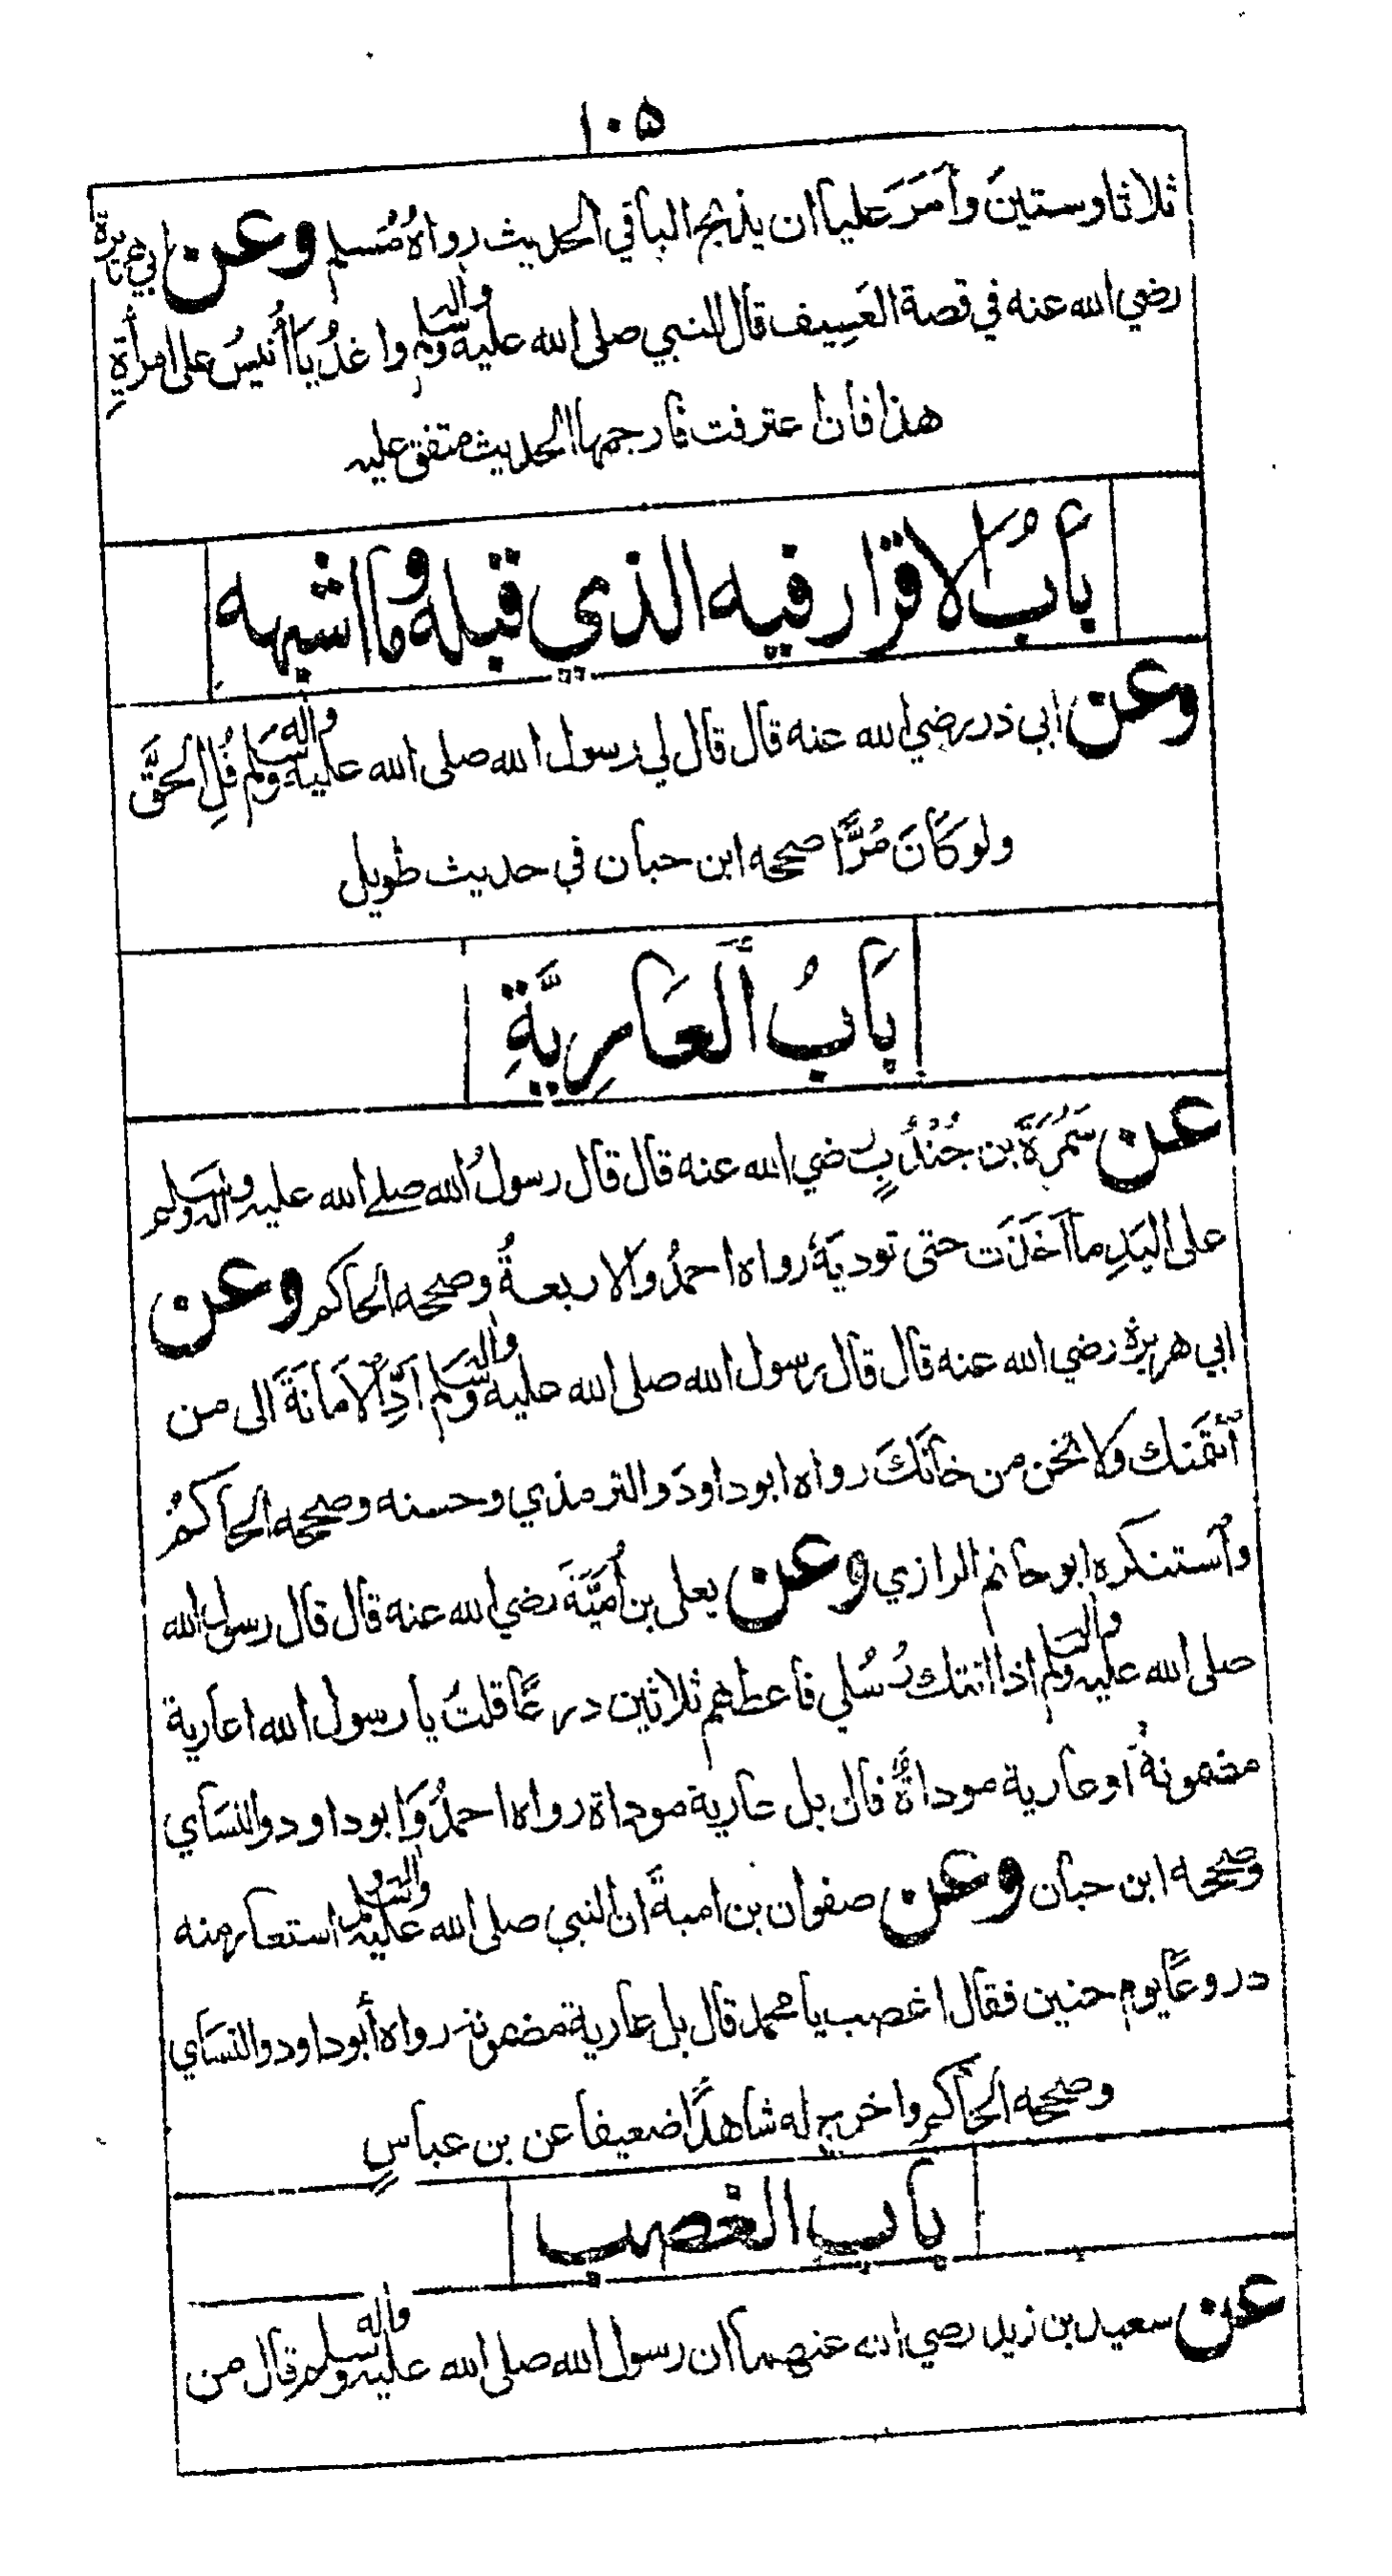 ١٠٥
ثلاثا وستينَ وأَمَرَ عليا ان يذبح الباقي الحديث رواهُ مُسلم وعن ابي هريرة
رضي الله عنه في قصة العَسِيف قال النبي صلى الله عليه وآله وسلم واغدُ يَا أُنَيسُ على امرأةِ
هذا فان اعترفت فارجمها الحديث متفق عليه
بَابُ الاقرار فيه الذي قبله وما اشبهه
وعن ابي ذر رضي الله عنه قال قال لي رسول الله صلى الله عليه وآله وسلم قُلِ الحقَّ
ولو كَانَ مُرًّا صححه ابن حبان في حديث طويل
بَابُ ألعَارِيَّةِ
عن سَمُرَةَ بن جُنْدُبٍ رضي الله عنه قال قال رسولُ الله صلے الله عليه وآله وسلم
على اليَدِ ما آخَذَت حتى توديَهُ رواه احمدُ والاربعةُ وصححه الحاكم وعن
ابي هريرة رضي الله عنه قال قال رسول الله صلى الله عليه وآله وسلم اَدِّ الاَمَانَةَ الى من
أئتمَنك ولا تخن من خانَكَ رواه ابو داودَ والترمذي وحسنه وصححه الحاكمُ
وأستنكره ابو حاتم الرازي وعن يعلى بن اُمَيَّةَ رضي الله عنه قال قال رسول الله
صلى الله عليه وآله وسلم اذا اتتك رُسُلي فاعطهم ثلاثين درعًا قلتُ يا رسول الله اعارية
مضمونةً او عارية موداةً قال بل عارية موداة رواه احمدُ وَابو داود والنسَاي
وصححه ابن حبان وعن صفوان بن امية اَن النبي صلى الله عليه وآله وسلم استعار منه
دروعًا يوم حنين فقال اغصب يا محمد قال بل عارية مضمونة رواه أبو داود والنسَاي
وصححه الحاكم واخرج له شاهدًا ضعيفا عن بن عباسٍ
باب الغصب
عن سعيد بن زيد رضي الله عنهما ان رسول الله صلى الله عليه وآله وسلم قال من